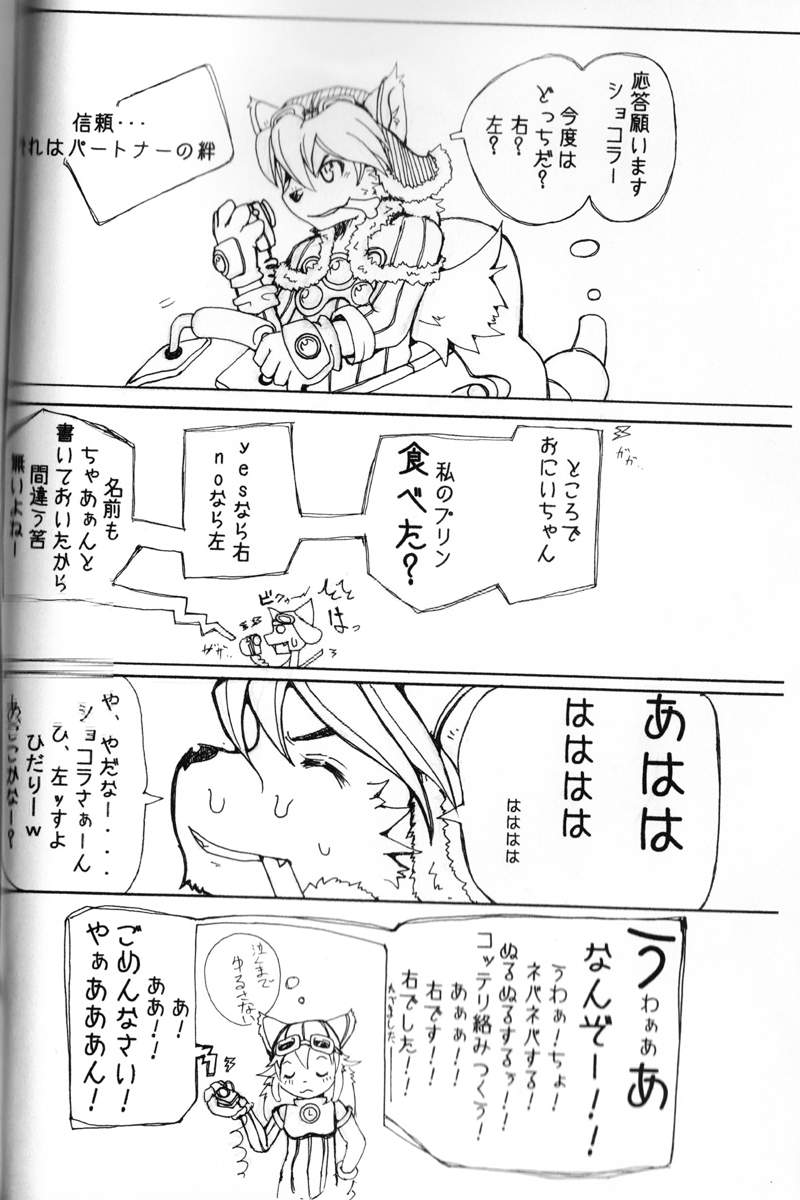 応答願います
ショコラー
今度は
どっちだ?
右?
左?
信頼・・・
それはパートナーの絆
ところで
おにいちゃん
私のプリン
食べた?
yesなら右
noなら左
名前も
ちゃあぁんと
書いておいたから
間違う筈
無いよねー
ビクゥ
はっ
あはは
はははは
はははは
や、やだな-・・・・
ショコラさぁーん
ひ、左ッすよ
ひだりーw
うわぁぁあ
なんぞー!!
うわぁ!ちょ!
ネバネバする!
ぬるぬるするぅ!!
コッテリ絡みつくぅ!
あぁぁ!!
右です!!
右でした!!
泣くまで
ゆるさない
あ!
ああ!!
ごめんなさい!
やぁあああん!